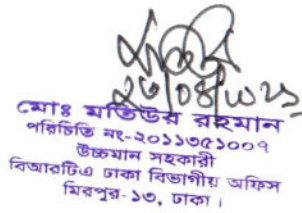 ২৩/০৪/২০২৩
মোঃ মতিউর রহমান
পরিচিতি নং-২০১১৩৫১০০৭
উচ্চমান সহকারী
বিআরটিএ ঢাকা বিভাগীয় অফিস
মিরপুর-১৩, ঢাকা।